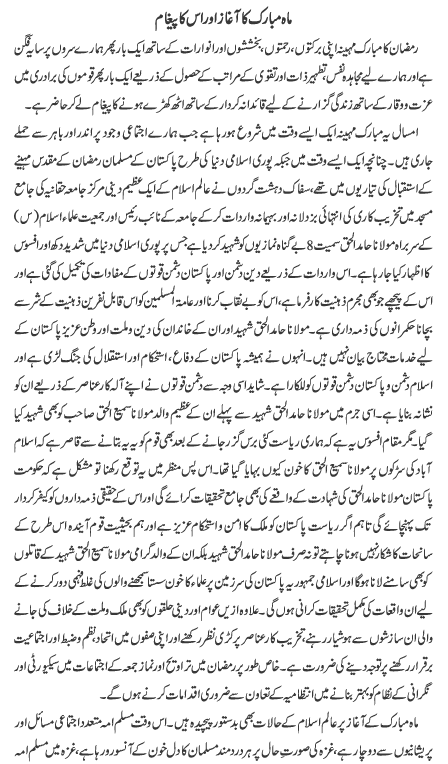 ماہ مبارک کا آغاز اور اس کا پیغام
رمضان کا مبارک مہینہ اپنی برکتوں، رحمتوں، بخششوں اور انوارات کے ساتھ ایک بار پھر ہمارے سروں پر سایہ فگن
ہے اور ہمارے لیے مجاہدہ نفس، تطہیر ذات اور تقویٰ کے مراتب کے حصول کے ذریعے ایک بار پھر قوموں کی برادری میں
عزت و وقار کے ساتھ زندگی گزارنے کے لیے قائدانہ کردار کے ساتھ اٹھ کھڑے ہونے کا پیغام لے کر حاضر ہے۔
امسال یہ مبارک مہینہ ایک ایسے وقت میں شروع ہو رہا ہے جب ہمارے اجتماعی وجود پر اندر اور باہر سے حملے
جاری ہیں۔ چنانچہ ایک ایسے وقت میں جبکہ پوری اسلامی دنیا کی طرح پاکستان کے مسلمان رمضان کے مقدس مہینے
کے استقبال کی تیاریوں میں تھے، سفاک دہشت گردوں نے عالم اسلام کے ایک عظیم دینی مرکز جامعہ حقانیہ کی جامع
مسجد میں تخریب کاری کی انتہائی بزدلانہ اور بہیمانہ واردات کر کے جامعہ کے نائب رئیس اور جمعیت علماء اسلام (س)
کے سربراہ مولانا حامد الحق سمیت 8 بے گناہ نمازیوں کو شہید کر دیا ہے جس پر پوری اسلامی دنیا میں شدید دکھ اور افسوس
کا اظہار کیا جا رہا ہے۔ اس واردات کے ذریعے دین دشمن اور پاکستان دشمن قوتوں کے مفادات کی تکمیل کی گئی ہے اور
اس کے پیچھے جو بھی مجرم ذہنیت کارفرما ہے، اس کو بے نقاب کرنا اور عامۃ المسلمین کو اس قابل نفرین ذہنیت کے شر سے
بچانا حکمرانوں کی ذمہ داری ہے۔ مولانا حامد الحق شہید اور ان کے خاندان کی دین و ملت اور وطن عزیز پاکستان کے
لیے خدمات محتاج بیان نہیں ہیں۔ انہوں نے ہمیشہ پاکستان کے دفاع، استحکام اور استقلال کی جنگ لڑی ہے اور
اسلام دشمن و پاکستان دشمن قوتوں کو للکارا ہے۔ شاید اسی وجہ سے دشمن قوتوں نے اپنے آلہ کار عناصر کے ذریعے ان کو
نشانہ بنایا ہے۔ اسی جرم میں مولانا حامد الحق شہید سے پہلے ان کے عظیم والد مولانا سمیع الحق صاحب کو بھی شہید کیا
گیا۔ مگر مقام افسوس یہ ہے کہ ہماری ریاست کئی برس گزر جانے کے بعد بھی قوم کو یہ بتانے سے قاصر ہے کہ اسلام
آباد کی سڑکوں پر مولانا سمیع الحق کا خون کیوں بہایا گیا تھا۔ اس پس منظر میں یہ توقع رکھنا تو مشکل ہے کہ حکومت
پاکستان مولانا حامد الحق کی شہادت کے واقعے کی بھی جامع تحقیقات کرائے گی اور اس کے حقیقی ذمہ داروں کو کیفر کردار
تک پہنچائے گی تاہم اگر ریاست پاکستان کو ملک کا امن و استحکام عزیز ہے اور ہم بحیثیت قوم آیندہ اس طرح کے
سانحات کا شکار نہیں ہونا چاہتے تو نہ صرف مولانا حامد الحق شہید بلکہ ان کے والد گرامی مولانا سمیع الحق شہید کے قاتلوں
کو بھی سامنے لانا ہوگا اور اسلامی جمہوریہ پاکستان کی سرزمین پر علماء کا خون سستا سمجھنے والوں کی غلط فہمی دور کرنے کے
لیے ان واقعات کی مکمل تحقیقات کرانی ہوں گی۔ علاوہ ازیں عوام اور دینی حلقوں کو بھی ملک و ملت کے خلاف کی جانے
والی ان سازشوں سے ہوشیار رہنے، تخریب کار عناصر پر کڑی نظر رکھنے اور اپنی صفوں میں اتحاد و نظم و ضبط اور اجتماعیت
برقرار رکھنے پر توجہ دینے کی ضرورت ہے۔ خاص طور پر رمضان میں تراویح اور نماز جمعہ کے اجتماعات میں سیکیورٹی اور
نگرانی کے نظام کو بہتر بنانے میں انتظامیہ کے تعاون سے ضروری اقدامات کرنے ہوں گے۔
ماہ مبارک کے آغاز پر عالم اسلام کے حالات بھی بدستور پیچیدہ ہیں۔ اس وقت مسلم امہ متعدد اجتماعی مسائل اور
پریشانیوں سے دوچار ہے، غزہ کی صورت حال پر ہر درد مند مسلمان کا دل خون کے آنسو رو رہا ہے، غزہ میں مسلم امہ